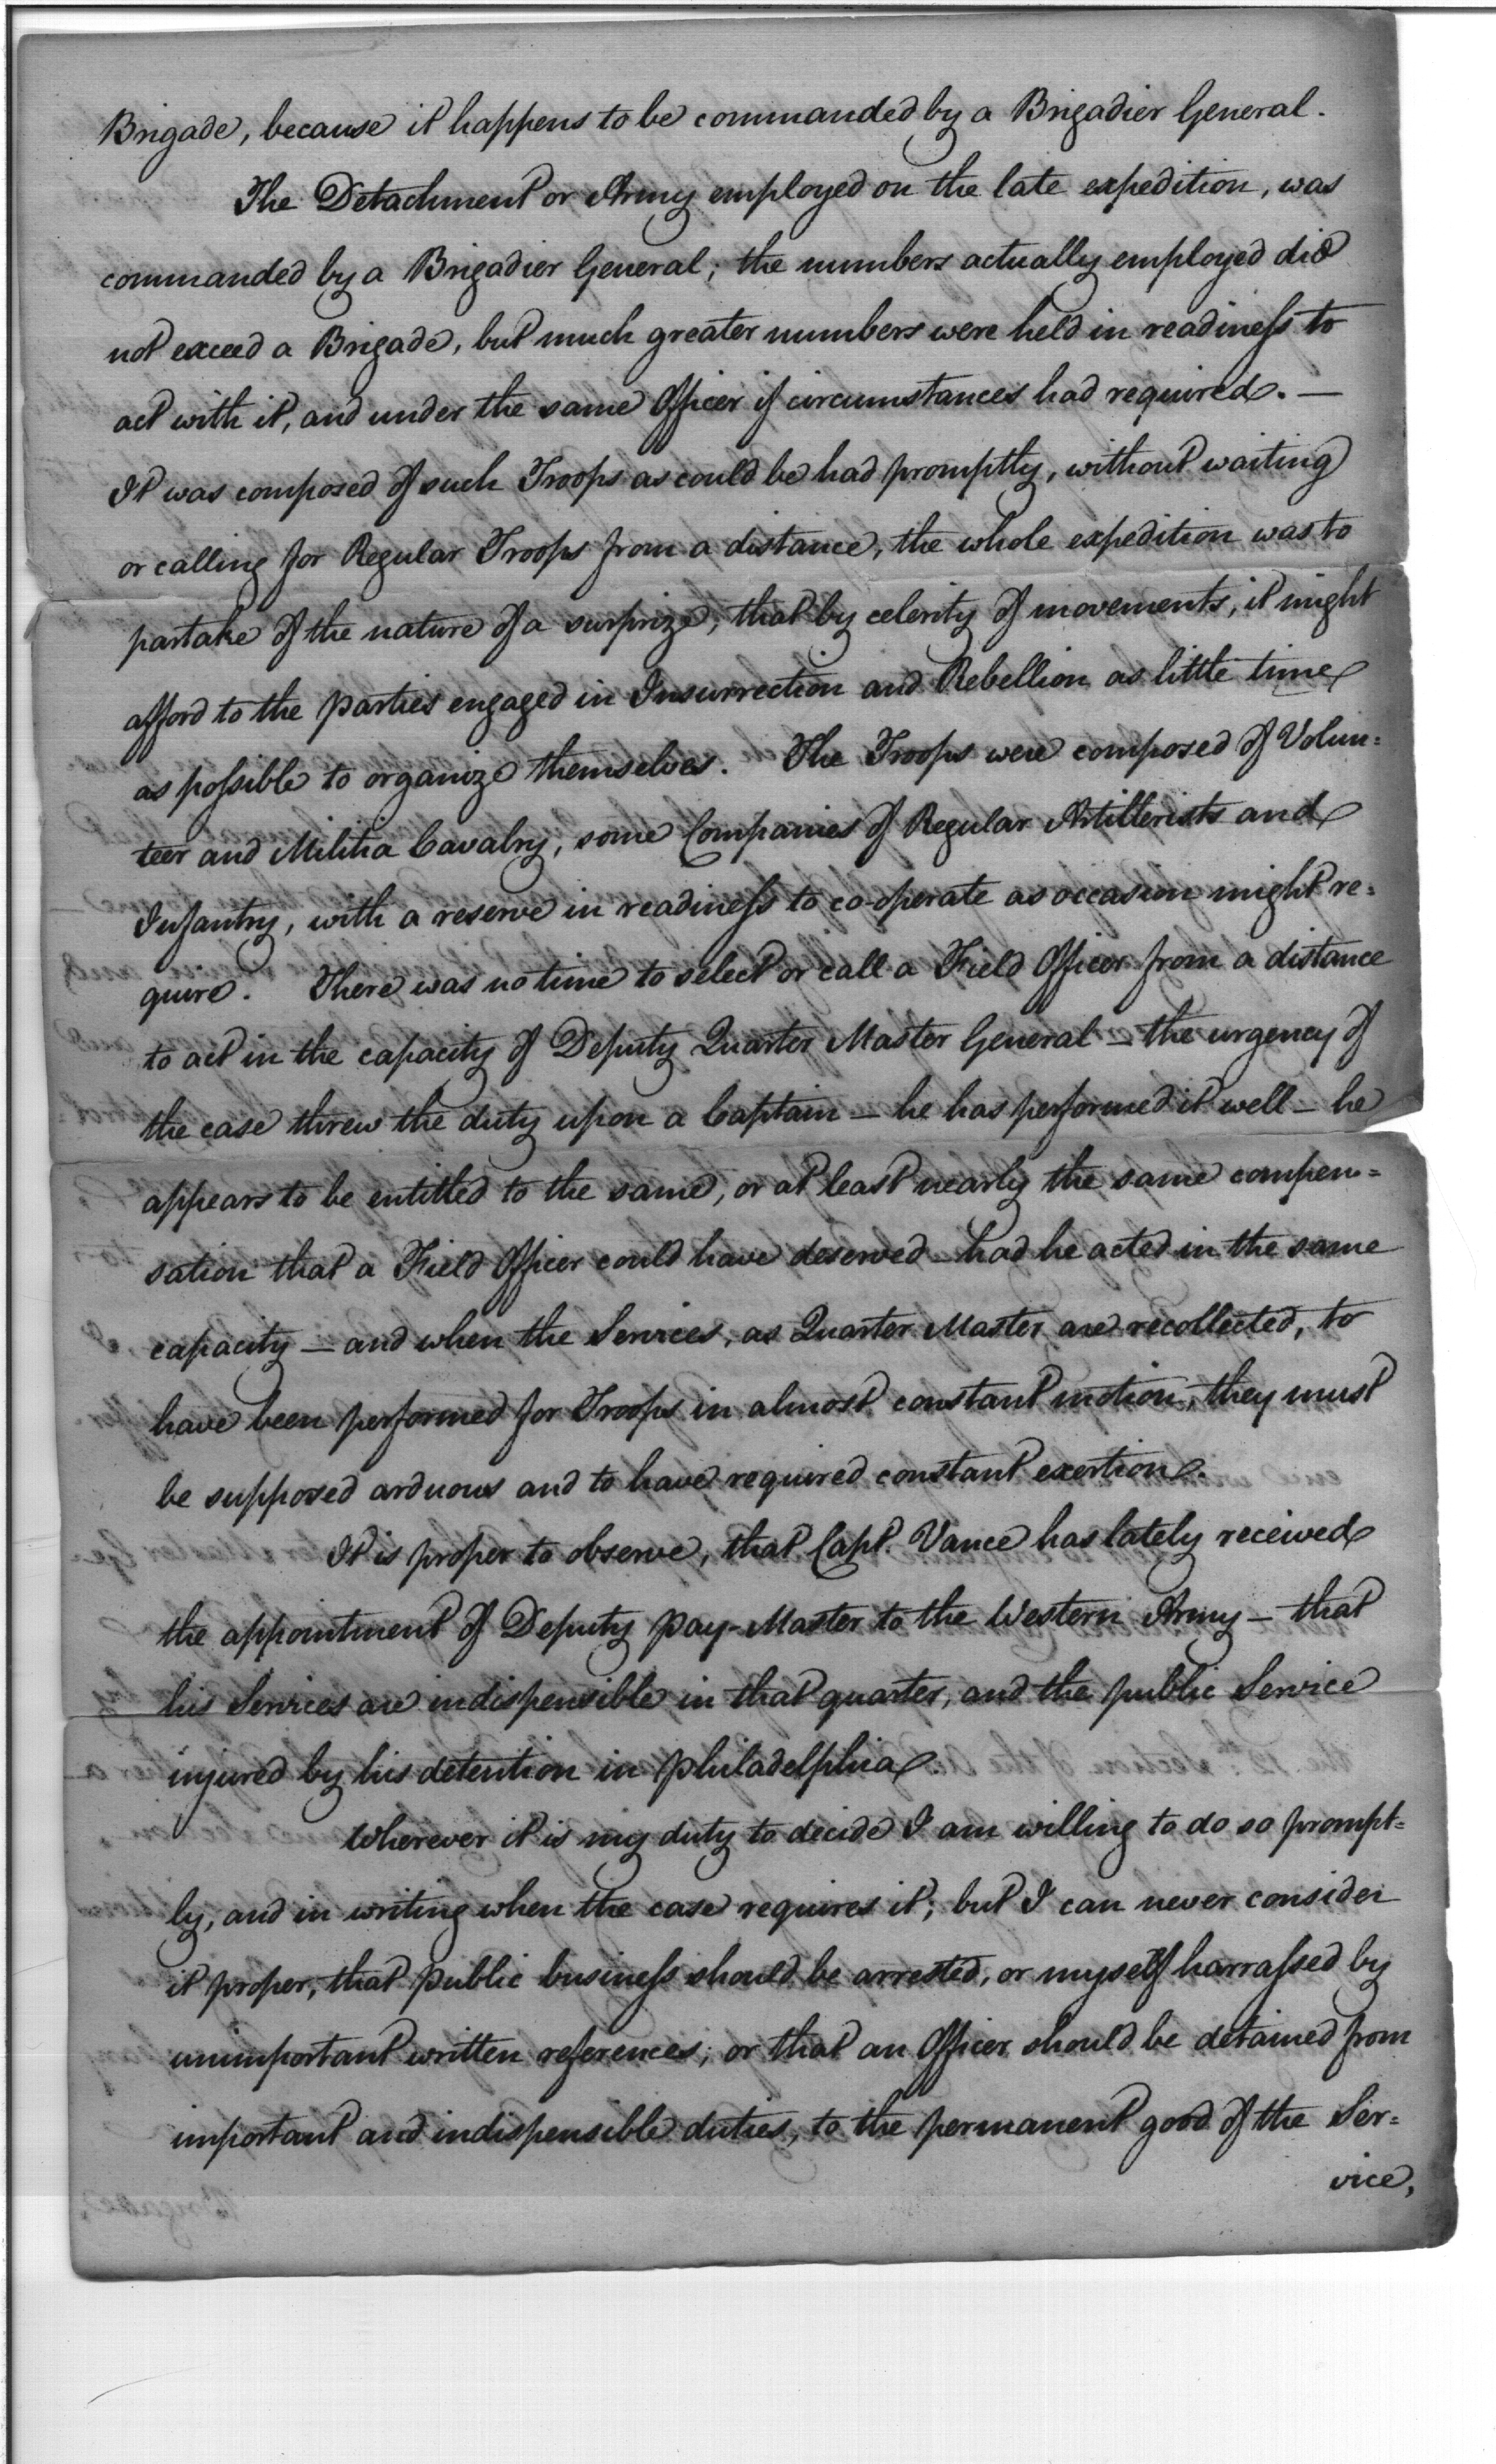 Brigade, because it happens to be commanded by a Brigadier General.
The Detachment or Army employed on the late expedition, was
commanded by a Brigadier General; the numbers actually employed did
not exceed a Brigade, but much greater numbers were held in readiness to
act with it, and under the same Officer if circumstances had required. —
It was composed of such Troops as could be had promptly, without waiting
or calling for Regular Troops from a distance, the whole expedition was to
partake of the nature of a surprize, that by celerity of movements, it might
afford to the parties engaged in Insurrection and Rebellion as little time
as possible to organize themselves. The Troops were composed of Volun=
teer and Militia Cavalry, some Companies of Regular Artillerists and
Infantry, with a reserve in readiness to co-operate as occasion might re=
quire. There was no time to select or call a Field Officer from a distance
to act in the capacity of Deputy Quarter Master General — the urgency of
the case threw the duty upon a Captain — he has performed it well — he
appears to be entitled to the same, or at least nearly the same compen=
sation that a Field Officer could have deserved — had he acted in the same
capacity — and when the Services, as Quarter Master are recollected, to
have been performed for Troops in almost constant motion, they must
be supposed arduous and to have required constant exertion.
It is proper to observe, that Capt. Vance has lately received
the appointment of Deputy Pay-Master to the Western Army — that
his Services are indispensible in that quarter, and the public Service
injured by his detention in Philadelphia.
Wherever it is my duty to decide I am willing to do so prompt=
ly, and in writing when the case requires it; but I can never consider
it proper, that public business should be arrested, or myself harrassed by
unimportant written references; or that an Officer should be detained from
important and indispensible duties, to the permanent good of the Ser=
vice,